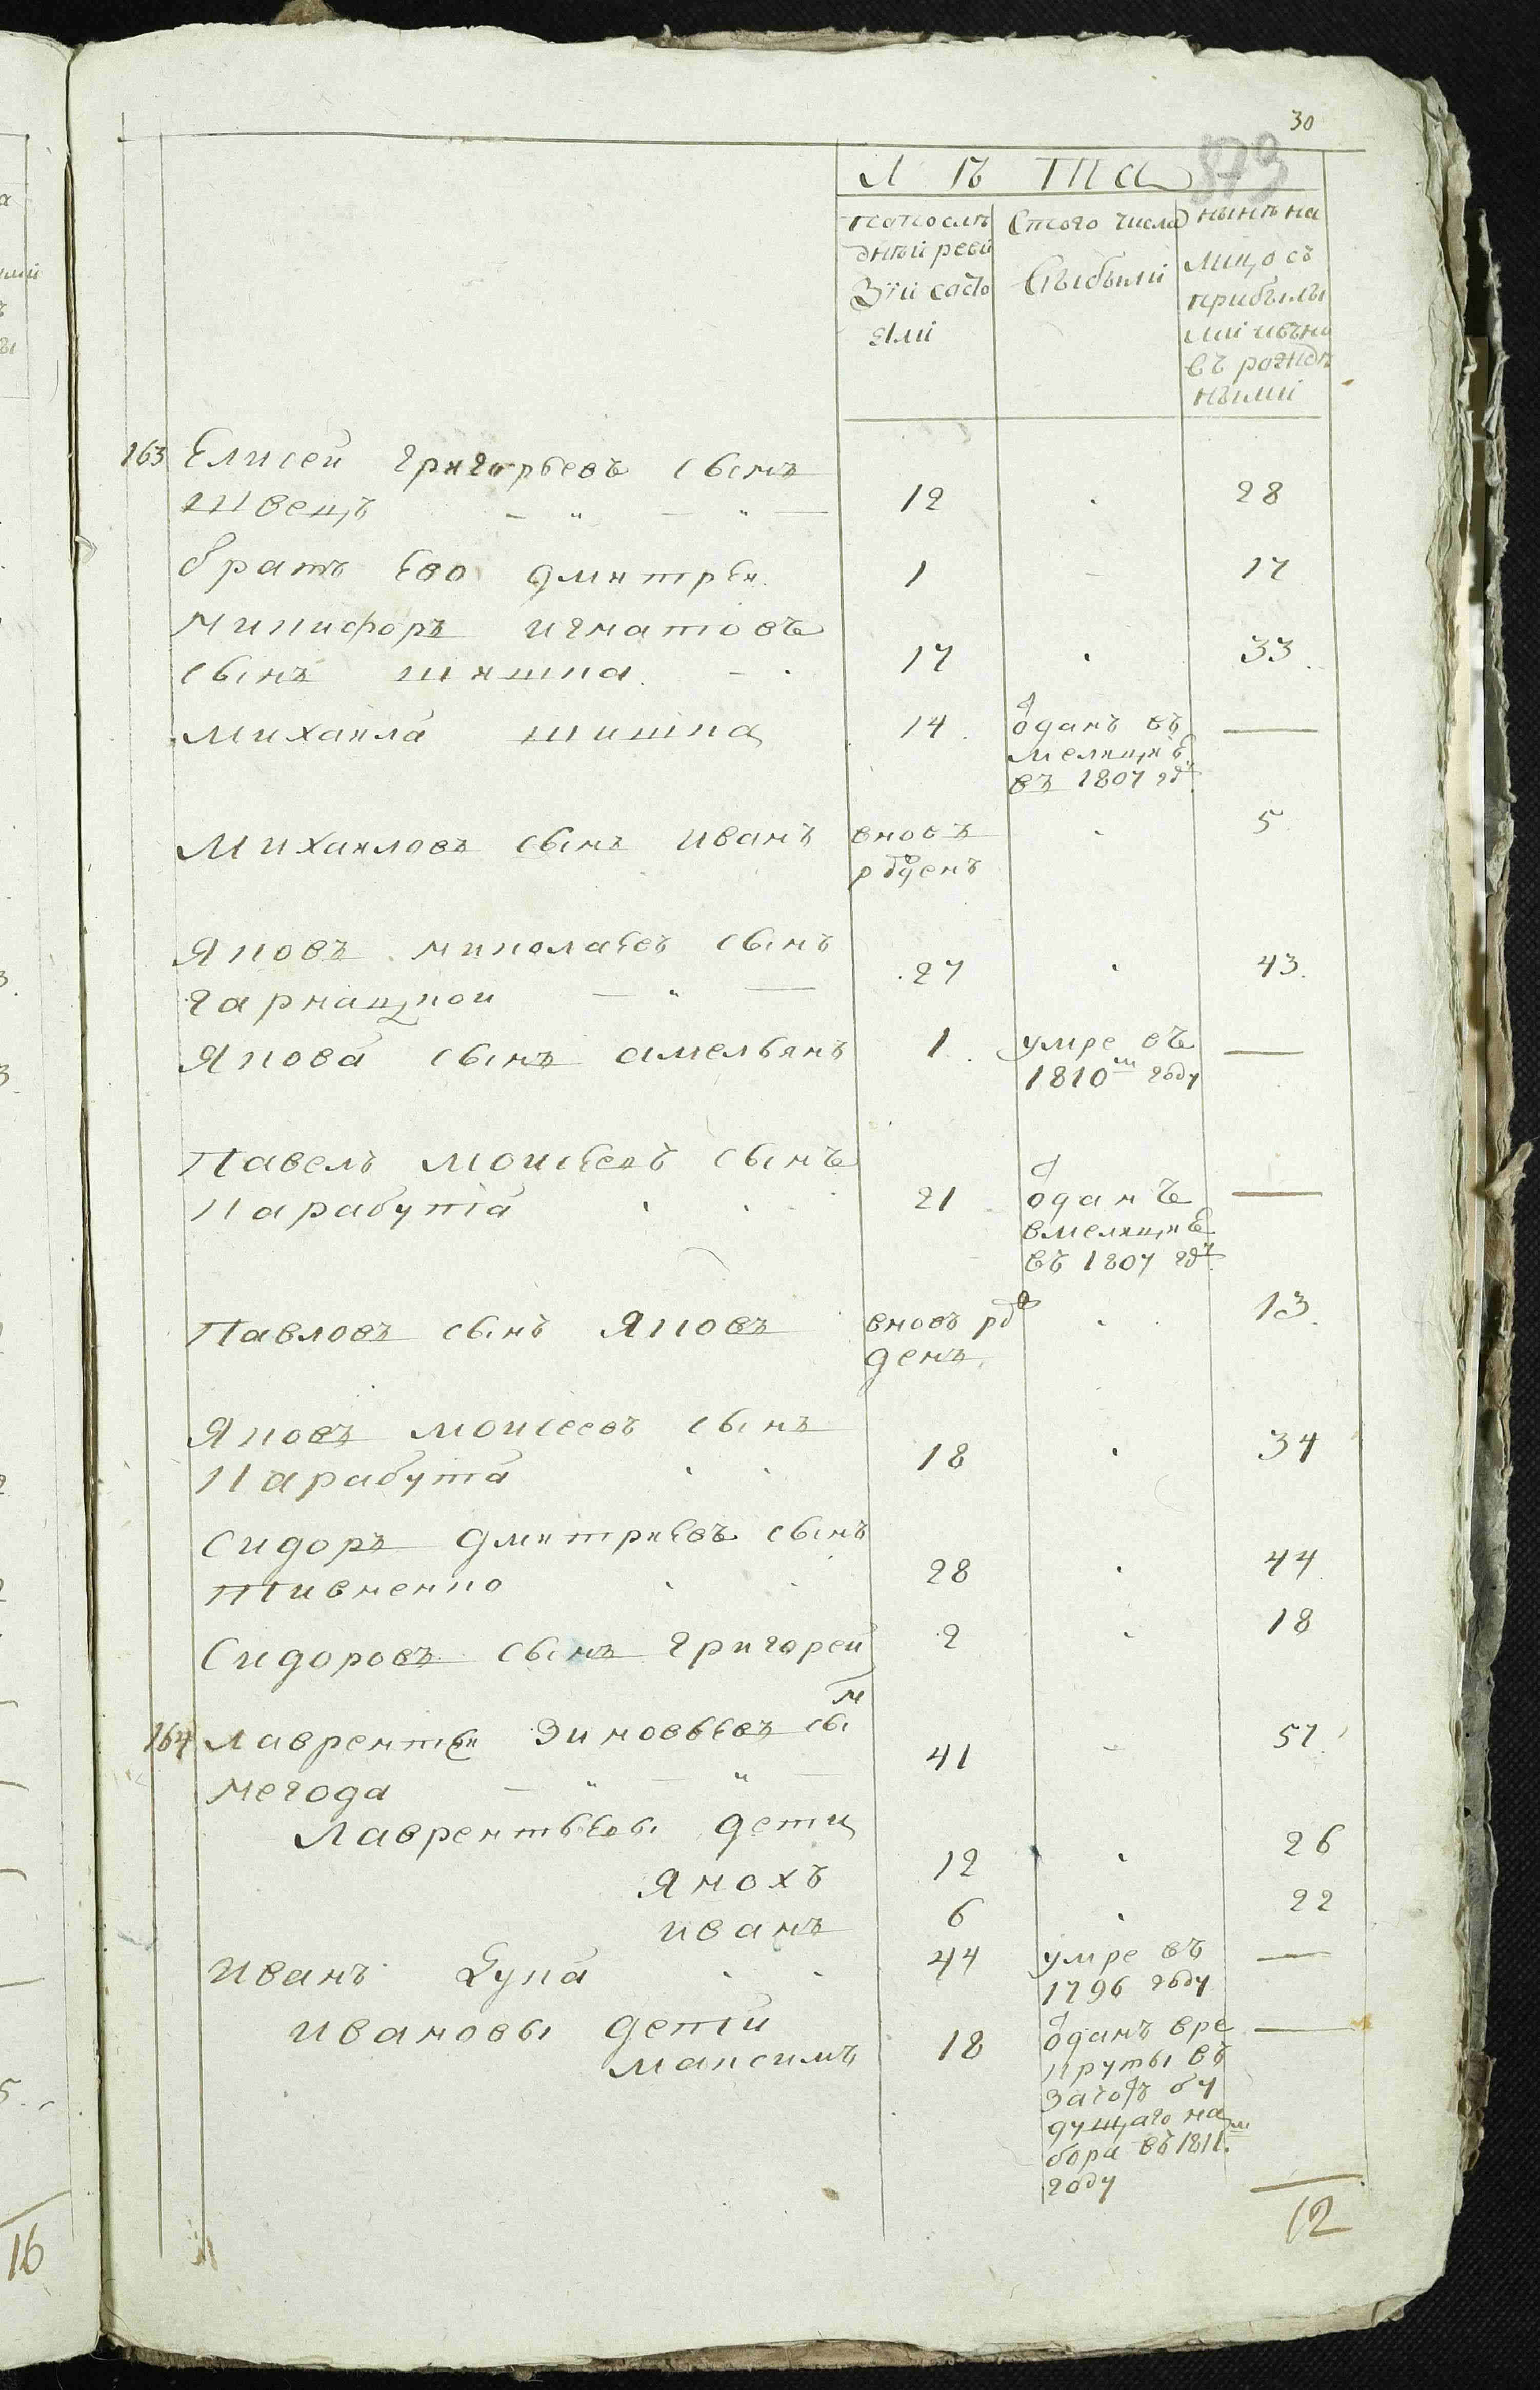 30
873
Лѣта
попослѣ
дней реви
зіи состо
яли
Стого числа
выбыли
нынѣ на
лицо съ
прибылы
ми ивъно
въ рожде
ными
163 Елисей григорьевъ сынъ
швецъ 12 28
братъ Ево дмитрей 1 17
никифоръ игнатовъ
сынъ шишка 17 33
михайла шишка 14 одан въ —
мелицію
въ 1807 гдѣ
михаиловъ сынъ иванъ вновь 5
рожденъ
Яковъ николаевъ сынъ
гарнацкои 27 43
Якова сынъ амельянъ 1 умре въ —
1810м году
Павелъ моисеевъ сынъ
карабута 21 оданъ —
вмелицію
въ 1807 гдѣ
Павловъ сынъ Яковъ вновь рож 13
денъ
Яковъ моисеевъ сынъ
карабута 18 34
Сидоръ дмитриевъ сынъ
пивненко 28 44
Сидоровъ сынъ григорей 2 18
164 лаврентей Зиновьевъ сынъ
негода 41 57
лаврентьевы дети
Янохъ 12 26
иванъ 6 22
иванъ Лупа 44 умре въ —
1796 году
ивановы дети
максимъ 18 оданъ вре —
круты въ
зачотъ бу
дущаго на
бора въ 1811м
году
12
16